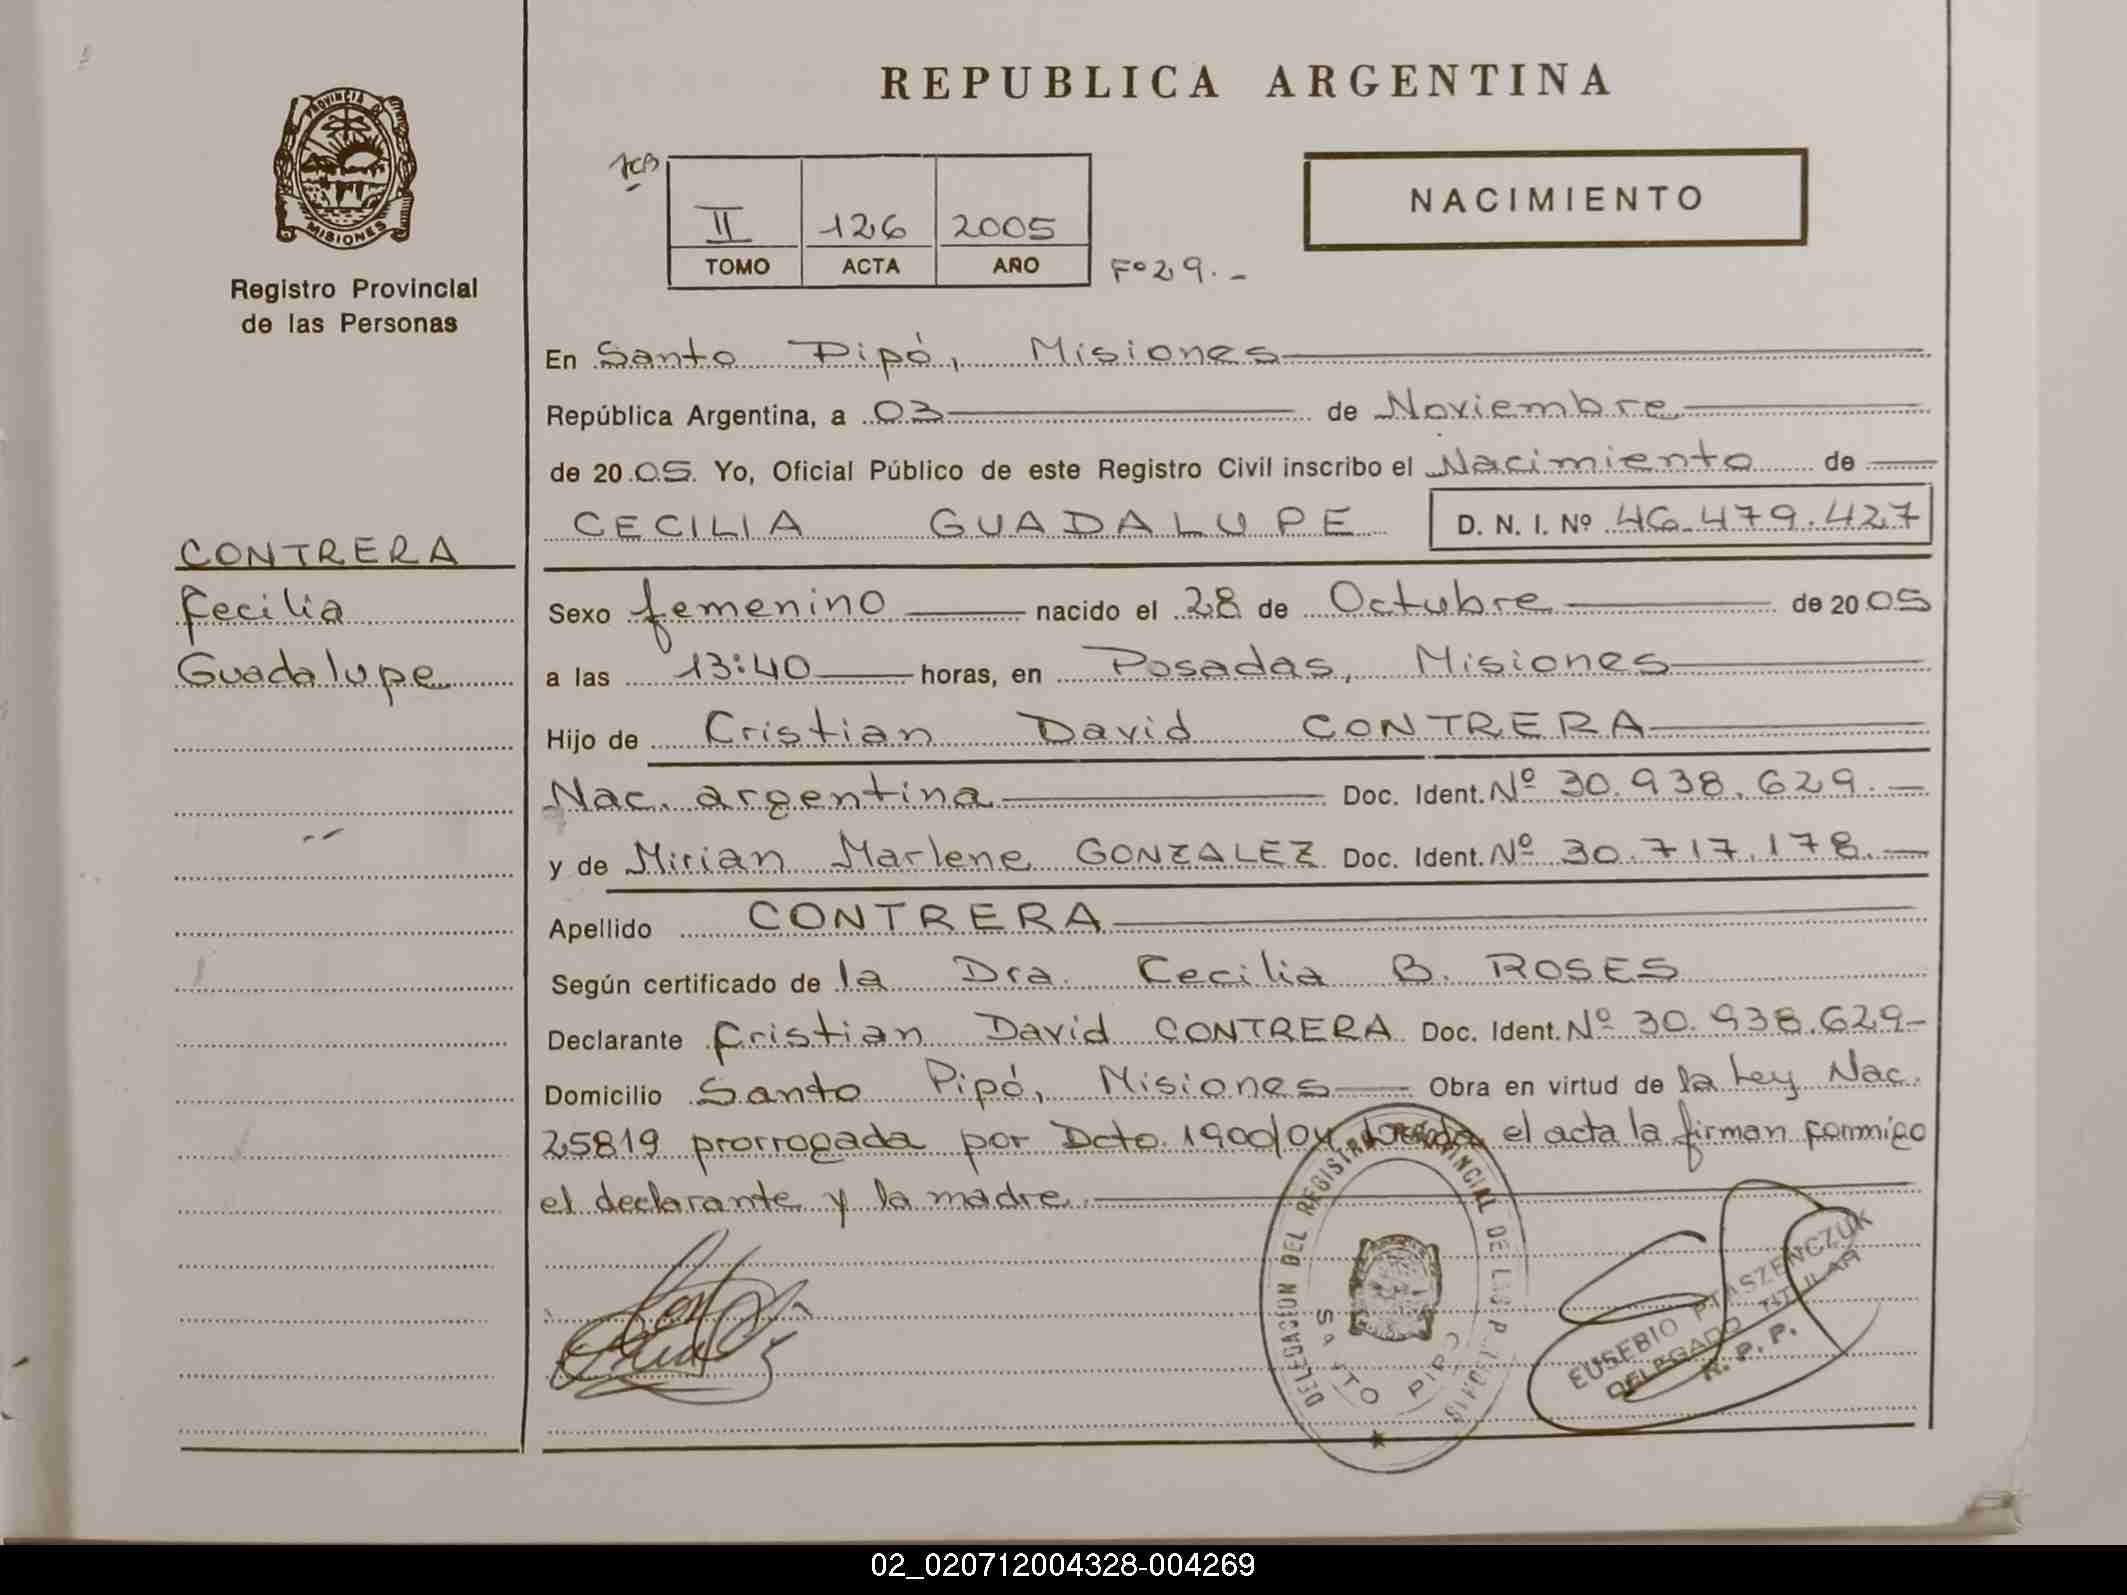 REPUBLICA ARGENTINA
PROVINCIA DE
MISIONES
Registro Provincial
de las Personas
NACIMIENTO
II 126 2005
TOMO ACTA AÑO
Fº 29.-
En Santo Pipó, Misiones
República Argentina, a 03 de Noviembre
de 2005. Yo, Oficial Público de este Registro Civil inscribo el Nacimiento de
CECILIA GUADALUPE D. N. I. Nº 46.479.427
CONTRERA
Cecilia
Guadalupe
Sexo femenino nacido el 28 de Octubre de 2005
a las 13:40 horas, en Posadas, Misiones
Hijo de Cristian David CONTRERA
Nac. argentina Doc. Ident. Nº 30.938.629.-
y de Mirian Marlene GONZALEZ Doc. Ident. Nº 30.717.178.-
Apellido CONTRERA
Según certificado de la Dra. Cecilia B. ROSES
Declarante Cristian David CONTRERA Doc. Ident. Nº 30.938.629-
Domicilio Santo Pipó, Misiones Obra en virtud de la Ley Nac.
25819 prorrogada por Dcto. 1900/04 el acta la firman conmigo
el declarante y la madre.
DELEGACION DEL REGISTRO PROVINCIAL DE LAS PERSONAS
SANTO PIPO
EUSEBIO PTASZENCZUK
DELEGADO TITULAR
R. P. P.
02_020712004328-004269